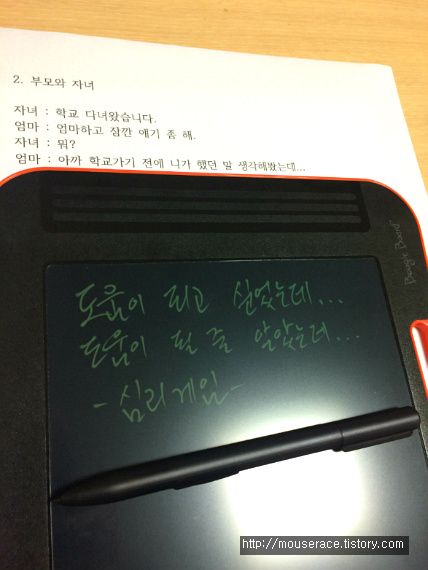 2. 부모와 자녀
자녀 : 학교 다녀왔습니다.
엄마 : 엄마하고 잠깐 얘기 좀 해.
자녀 : 뭐?
엄마 : 아까 학교가기 전에 니가 했던 말 생각해봤는데...
Boogie Board
도움이 되고 싶었는데...
도움이 될 줄 알았는데...
- 심리게임 -
http://mouserace.tistory.com